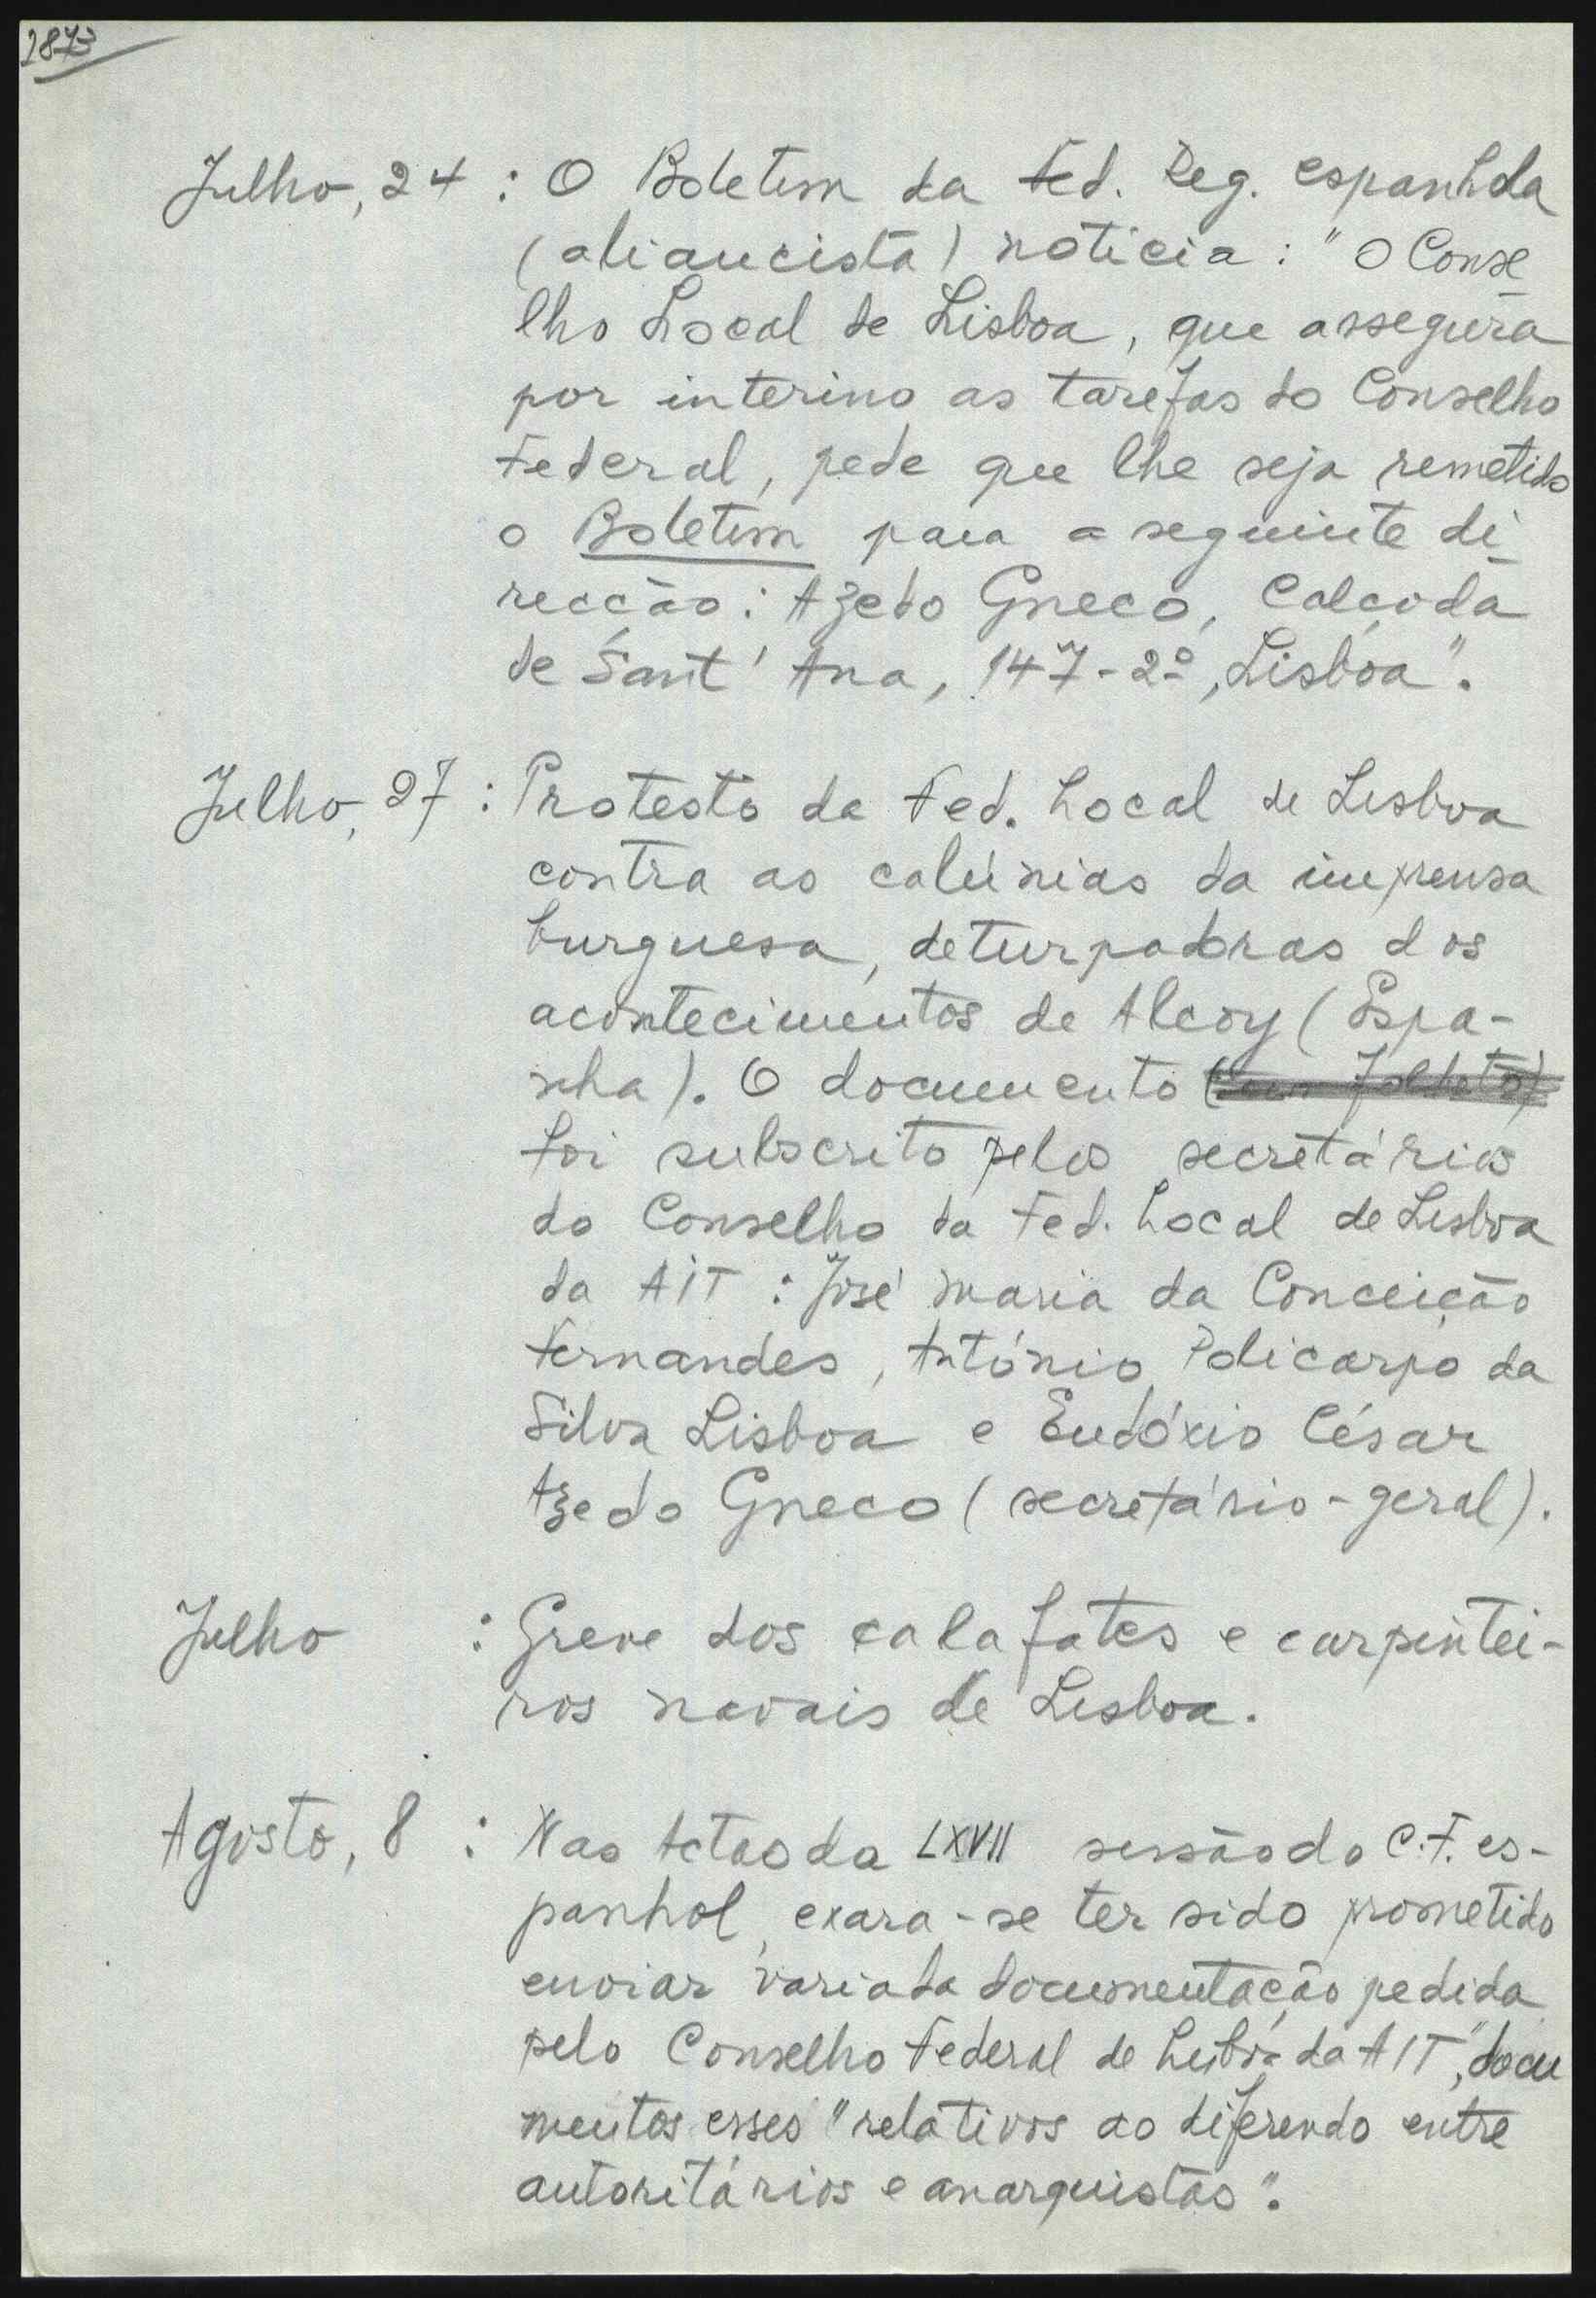 1873
Julho, 24 : O Boletim da Fed. Reg. espanhola
(aliancista) noticia: "O Conse
lho Local de Lisboa, que assegura
por interino as tarefas do Conselho
Federal, pede que lhe seja remetido
o Boletim para a seguinte di
recção: Azedo Gneco, Calçada
de Sant'Ana, 147-2º, Lisboa".
Julho, 27 : Protesto da Fed. Local de Lisboa
contra as calúnias da imprensa
burguesa, deturpadoras dos
acontecimentos de Alcoy (Espa-
nha). O documento (em folheto)
foi subscrito pelos secretários
do Conselho da Fed. Local de Lisboa
da AIT : José Maria da Conceição
Fernandes, António Policarpo da
Silva Lisboa e Eudóxio César
Azedo Gneco (secretário-geral).
Julho : Greve dos calafates e carpintei-
ros navais de Lisboa.
Agosto, 8 : Nas Actas da LXVII sessão do C.F. es-
panhol, exara-se ter sido prometido
enviar variada documentação pedida
pelo Conselho Federal de Lisboa da AIT", docu
mentos esses "relativos ao diferendo entre
autoritários e anarquistas".